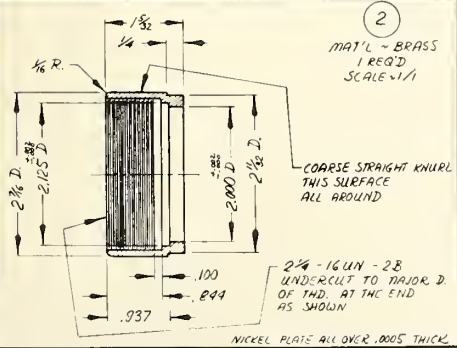 2
MAT'L ~ BRASS
1 REQ'D
SCALE ~ 1/1
1 5/32
1/4
1/16 R.
2 7/16 D.
2.125 D. +.002 -.000
2.000 D. +.002 -.000
2 11/32 D.
COARSE STRAIGHT KNURL
THIS SURFACE
ALL AROUND
.100
.844
.937
2 1/4 - 16 UN - 2B
UNDERCUT TO MAJOR D.
OF THD. AT THE END
AS SHOWN
NICKEL PLATE ALL OVER .0005 THICK